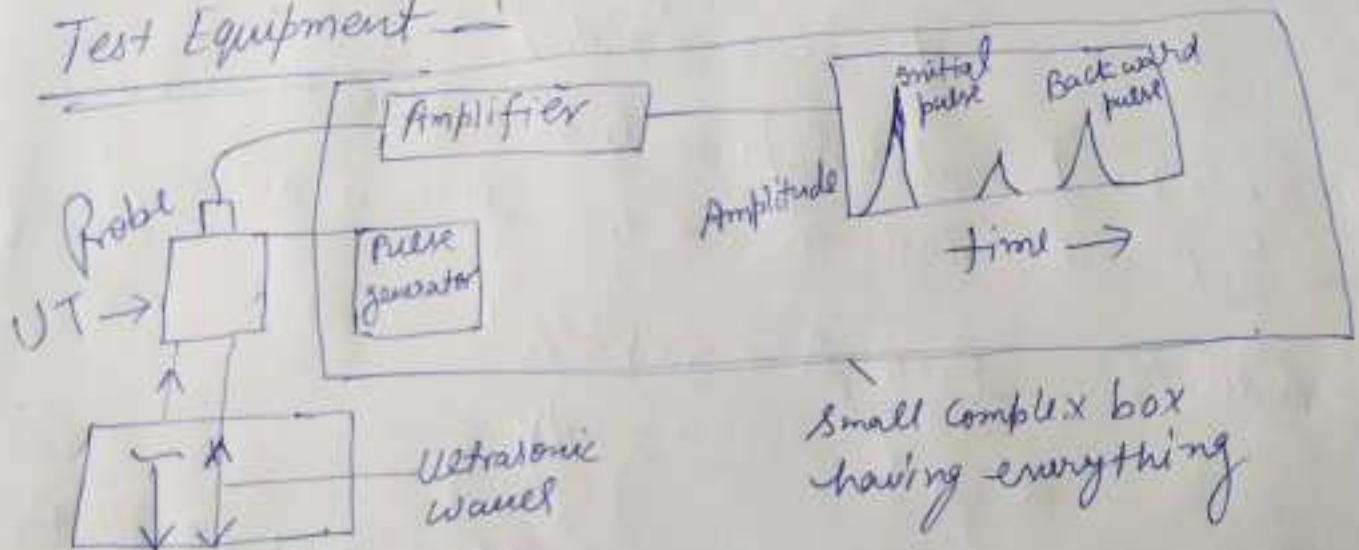 Test Equipment
Amplifier
initial
pulse
Backward
pulse
Probe
Amplitude
Pulse
generator
time →
UT →
Ultrasonic
waves
Small complex box
having everything